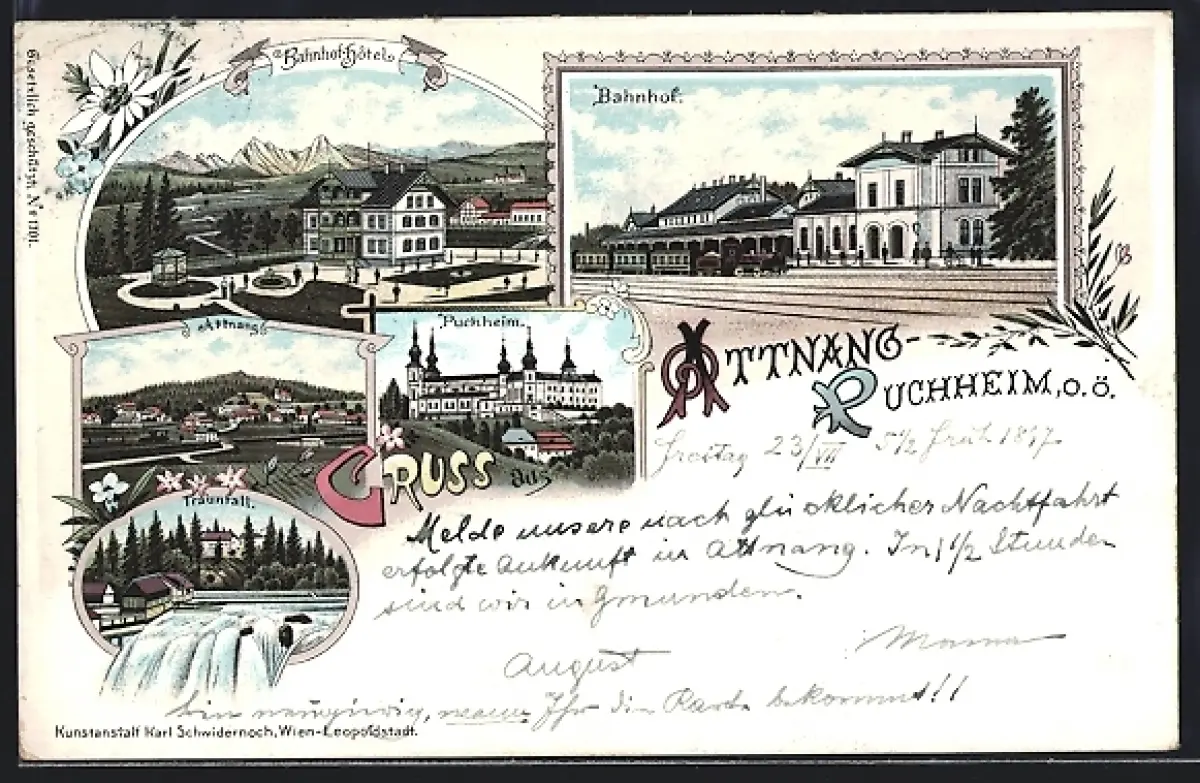 Gesetzlich geschützt No 1101.
Bahnhof-Hôtel
Bahnhof.
Attnang
Puchheim.
Traunfall.
Gruss aus
Attnang-
Puchheim, o.ö.
Freitag 23/VII 5 1/2 Früh 1897
Melde unsere nach glücklicher Nachtfahrt
erfolgte Ankunft in Attnang. In 1 1/2 Stunden
sind wir in Gmunden.
Mama
August
bin neugierig, wann Ihr die Karte bekommt!!
Kunstanstalt Karl Schwidernoch, Wien-Leopoldstadt.